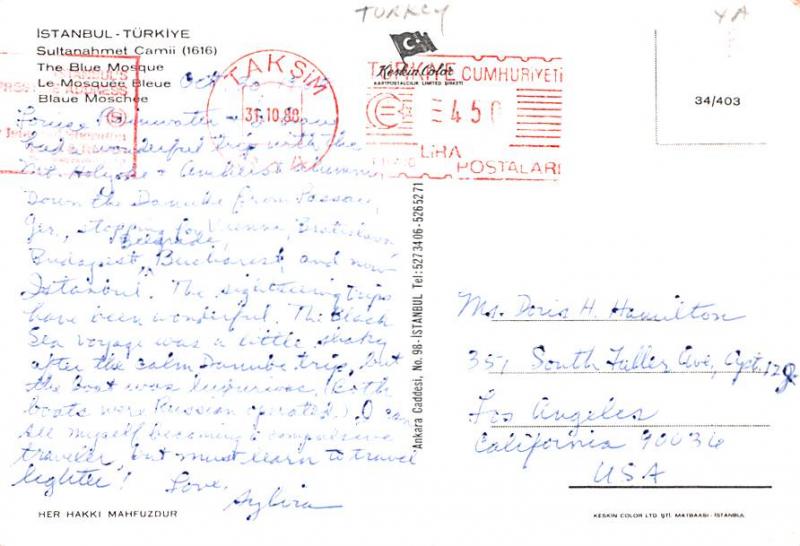 TURKEY
YA
İSTANBUL - TÜRKİYE
Sultanahmet Camii (1616)
The Blue Mosque
Le Mosquée Bleue
Blaue Moschee
TAKSİM
31.10.88
Keskin Color
KARTPOSTALCILIK LIMITED ŞİRKETİ
TÜRKİYE CUMHURİYETİ
450
LİRA
POSTALARI
34/403
Oct
had a wonderful trip with the
Mt. Holyoke + Amherst alumni
down the Danube from Passau,
Ger., stopping for Vienna, Bratislava
Belgrade,
Budapest, Bucharest, and now
Istanbul. The sightseeing trips
have been wonderful. The Black
Sea voyage was a little shaky
after the calm Danube trip, but
the boat was luxurious. (Both
boats were Russian operated.) I can
see myself becoming a compulsive
traveler, but must learn to travel
lighter! Love,
Sylvia
Ankara Caddesi, No. 98-İSTANBUL Tel: 5273406-5265271
Ms. Doris H. Hamilton
351 South Fuller Ave, Apt. 12J
Los Angeles
California 90036
USA
HER HAKKI MAHFUZDUR
KESKIN COLOR LTD ŞTİ. MATBAASI - İSTANBUL